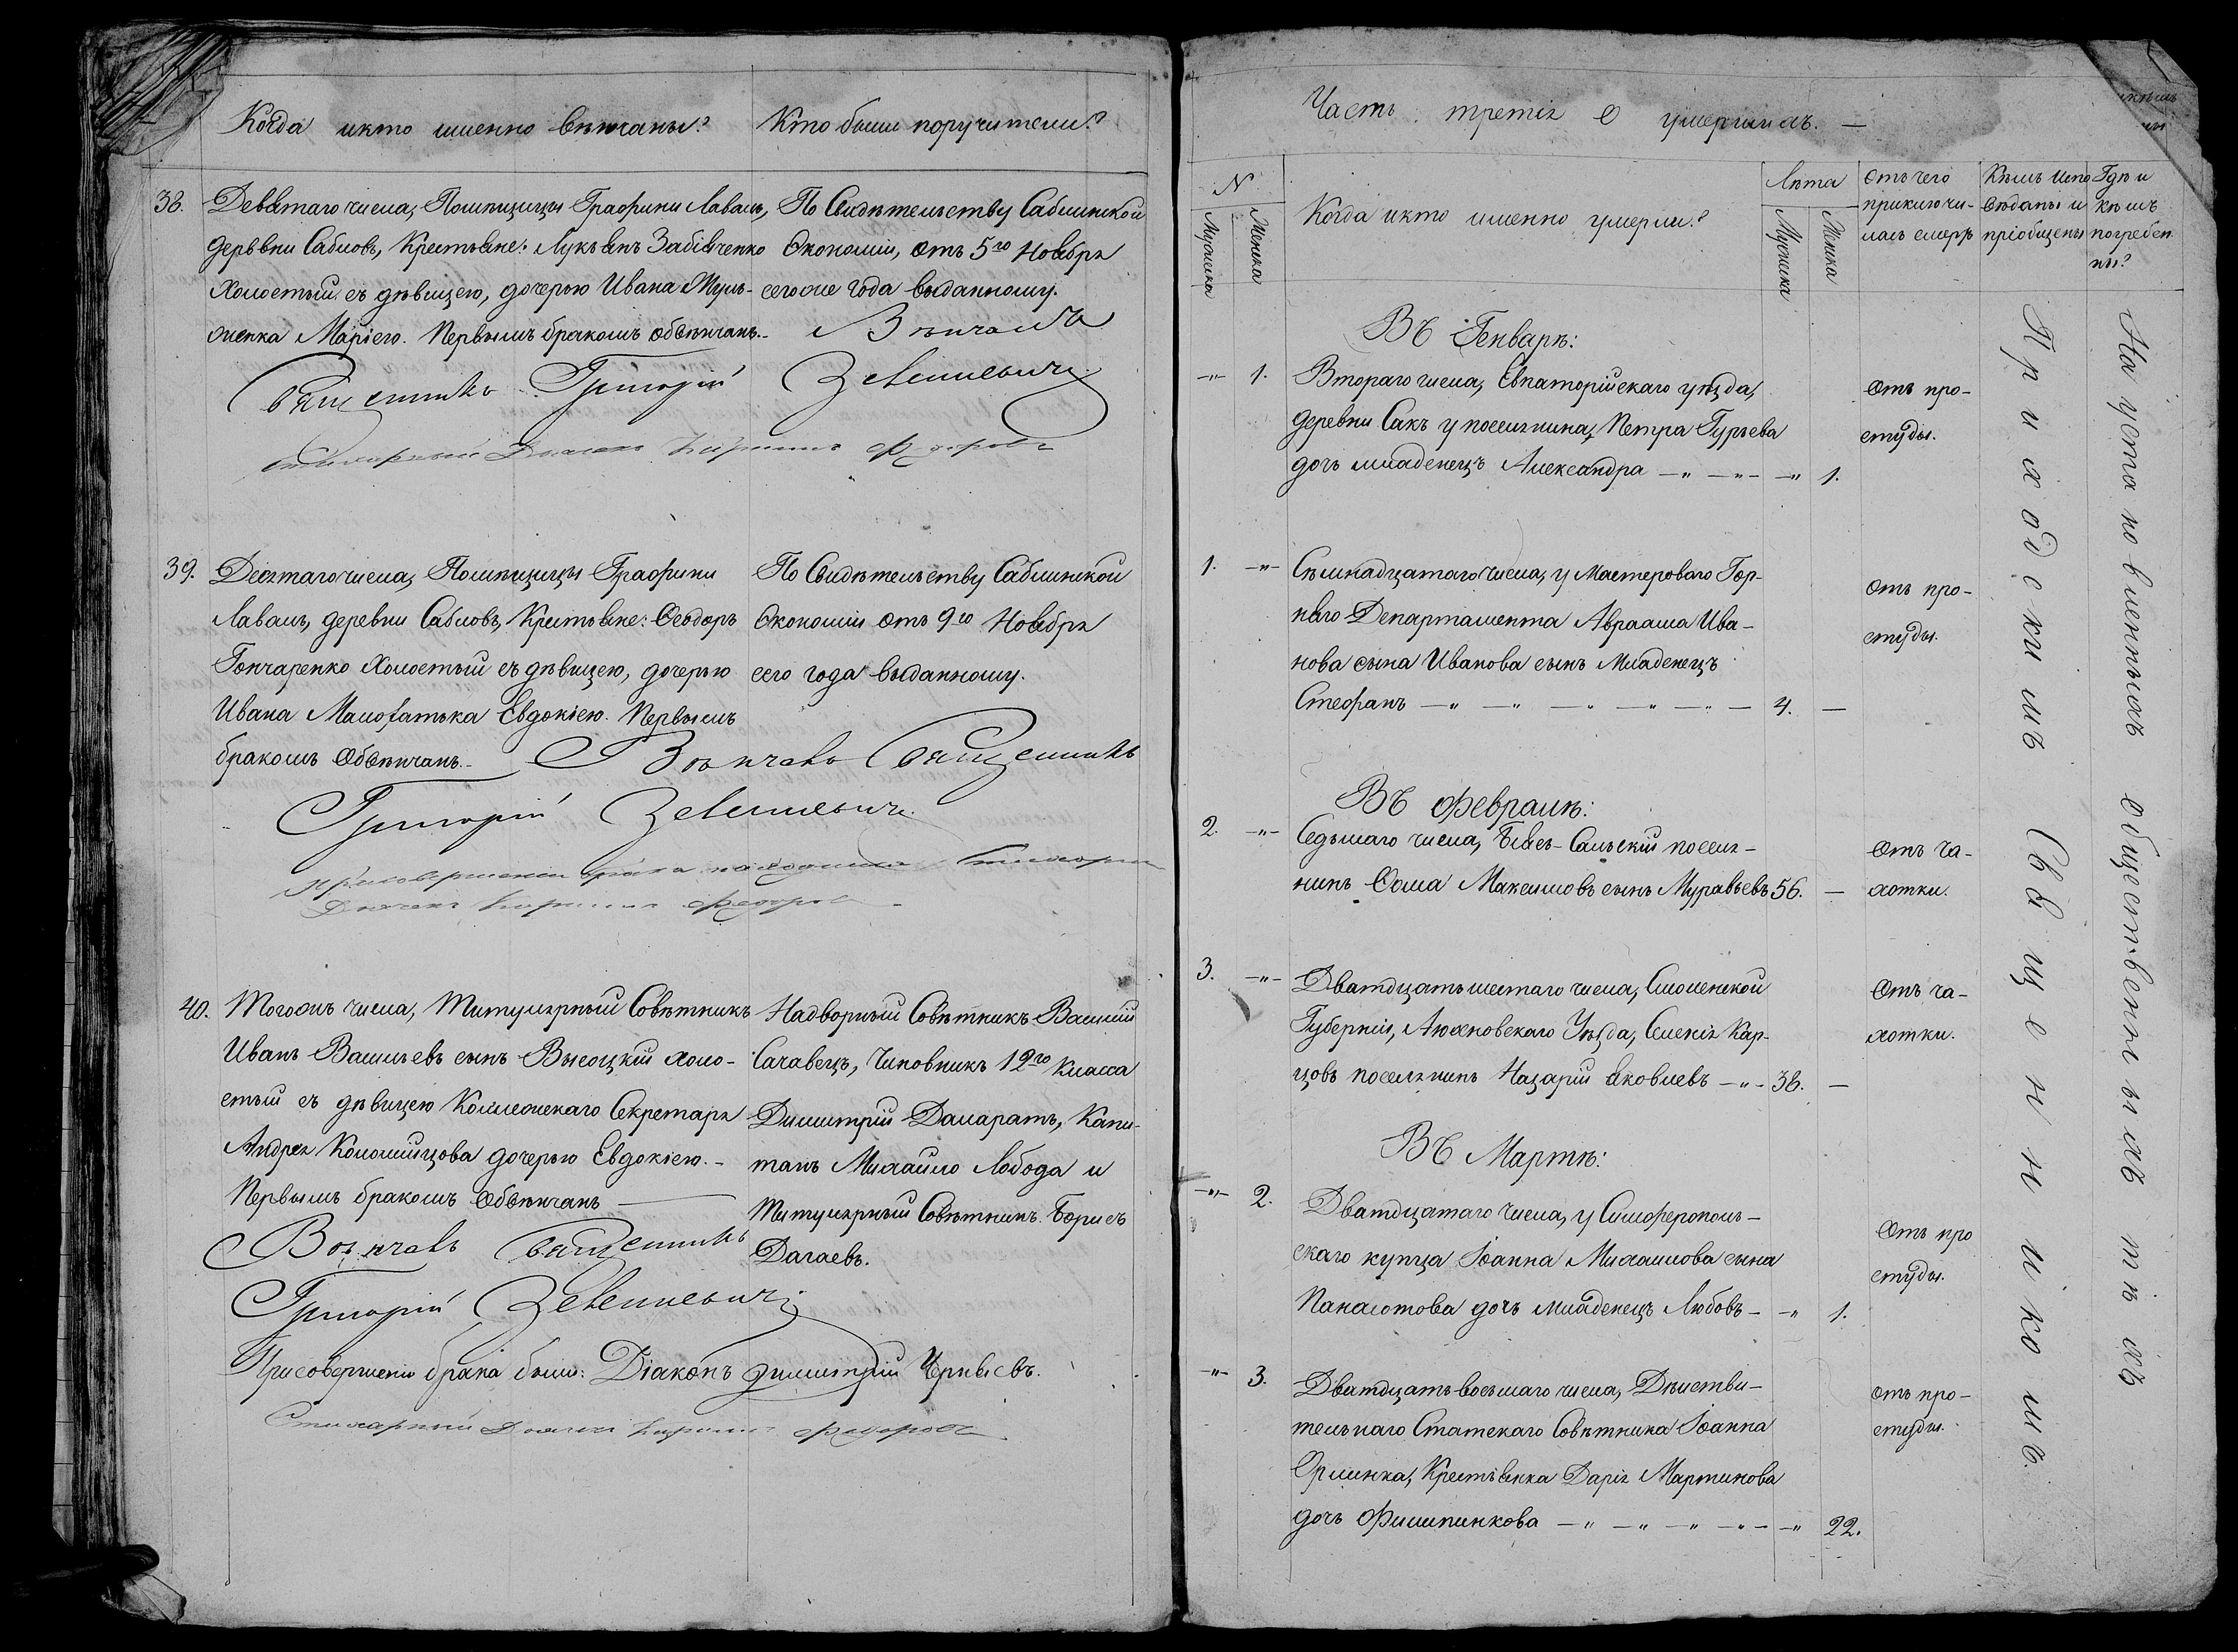 Когда икто именно вѣнчаны?
Кто были поручители?
38.
Девятаго числа, Помѣщицы Графини Лаваль,
деревни Сабловъ, Крестьяне: Лукьянъ Забiяченко
Холостый съ дѣвицею, дочерью Ивана Муль-
женка Марiею. Первымъ бракомъ обвѣнчанъ.-
По Свидѣтельству Саблинской
Экономiи, отъ 5го Ноября
сегоже года выданному.
Вѣнчалъ
Священникъ Григорiй
Стихарный Дьячекъ Кирилъ Федоровъ
39.
Десятагочисла, Помѣщицы Графини
Лаваль, деревни Сабловъ, Крестьяне: Ѳеодоръ
Гончаренко Холостый съ дѣвицею, дочерью
Ивана Евдокiею. Первымъ
бракомъ Обвѣнчанъ.-
По Свидѣтельству Саблинской
Экономiи отъ 9го Ноября
сего года выданному.
Вѣнчалъ Священникъ
Григорiй
Присовершенiи брака находился Стихарный
Дьячекъ Кирилъ Федоровъ
40.
Тогожъ числа, Титулярный Совѣтникъ
Иванъ Васильевъ сынъ Высоцкiй холо-
стый съ дѣвицею Коллежскаго Секретаря
Андрея Коломiйцова дочерью Евдокiею.-
Первымъ бракомъ Обвѣнчанъ
Надворный Совѣтникъ Василiй
Сахавецъ, Чиновникъ 12го Класса
Димитрiй Даларатъ, Капи-
танъ Михайло Лобода и
Титулярный Совѣтникъ Борисъ
Дагаевъ.
Вѣнчалъ Священникъ
Григорiй
Присовершенiи брака были: Дiаконъ Димитрiй Чернявскiй.
Стихарный Дьячекъ Кирилъ Федоровъ
Часть третiя О умершихъ. —
N
Мужеска
Женска
Когда икто именно умерли?
Лѣта
Мужеска
Женска
Отъ чего
приключи-
лась смерть
Кѣмъ испо
вѣданы и
прiобщены
Гдѣ и
кѣмъ
погребен
ны?
Въ Генварѣ:
-"- 1.
Втораго числа, Евпаторiйскаго уѣзда,
деревни Сакъ у поселянина, Петра Гурьева
дочь младенецъ Александра —"— —"— —" 1.
Отъ про-
студы.
1. -"-
Семнадцатаго числа, у Мастероваго Гор-
наго Департамента Авраама Ива-
нова сына Иванова сынъ Младенецъ
Стефанъ —" —" —" —" —" — 4. —
Отъ про-
студы.
Въ Февралѣ:
2. -"-
Седьмаго числа, Бiясъ-Сальскiй поселя-
нинъ Ѳома Максимовъ сынъ Муравьевъ 56. —
Отъ ча-
хотки.
3. -"-
Дватцатьшестаго числа, Смоленской
Губернiи, Юхновскаго Уѣзда, Селенiя Кар-
цовъ поселянинъ Назарiй Яковлевъ —"- 38. —
Отъ ча-
хотки.
Въ Мартѣ:
-"- 2.
Дватцатаго числа, у Симферополь-
скаго купца Iоанна Михаилова сына
Панаiотова дочь младенецъ Любовь — —" 1.
Отъ про
студы.
-"- 3.
Дватцатьвосьмаго числа, Дѣйстви-
тельнаго Статскаго Совѣтника Iоанна
Орлинка, Крестьянка Дарiя Мартинова
дочь Филипинкова —" —" —" —" —" 22.
отъ про-
студы.
Приходскимъ Священникомъ
На уста новленныхъ общественныхъ